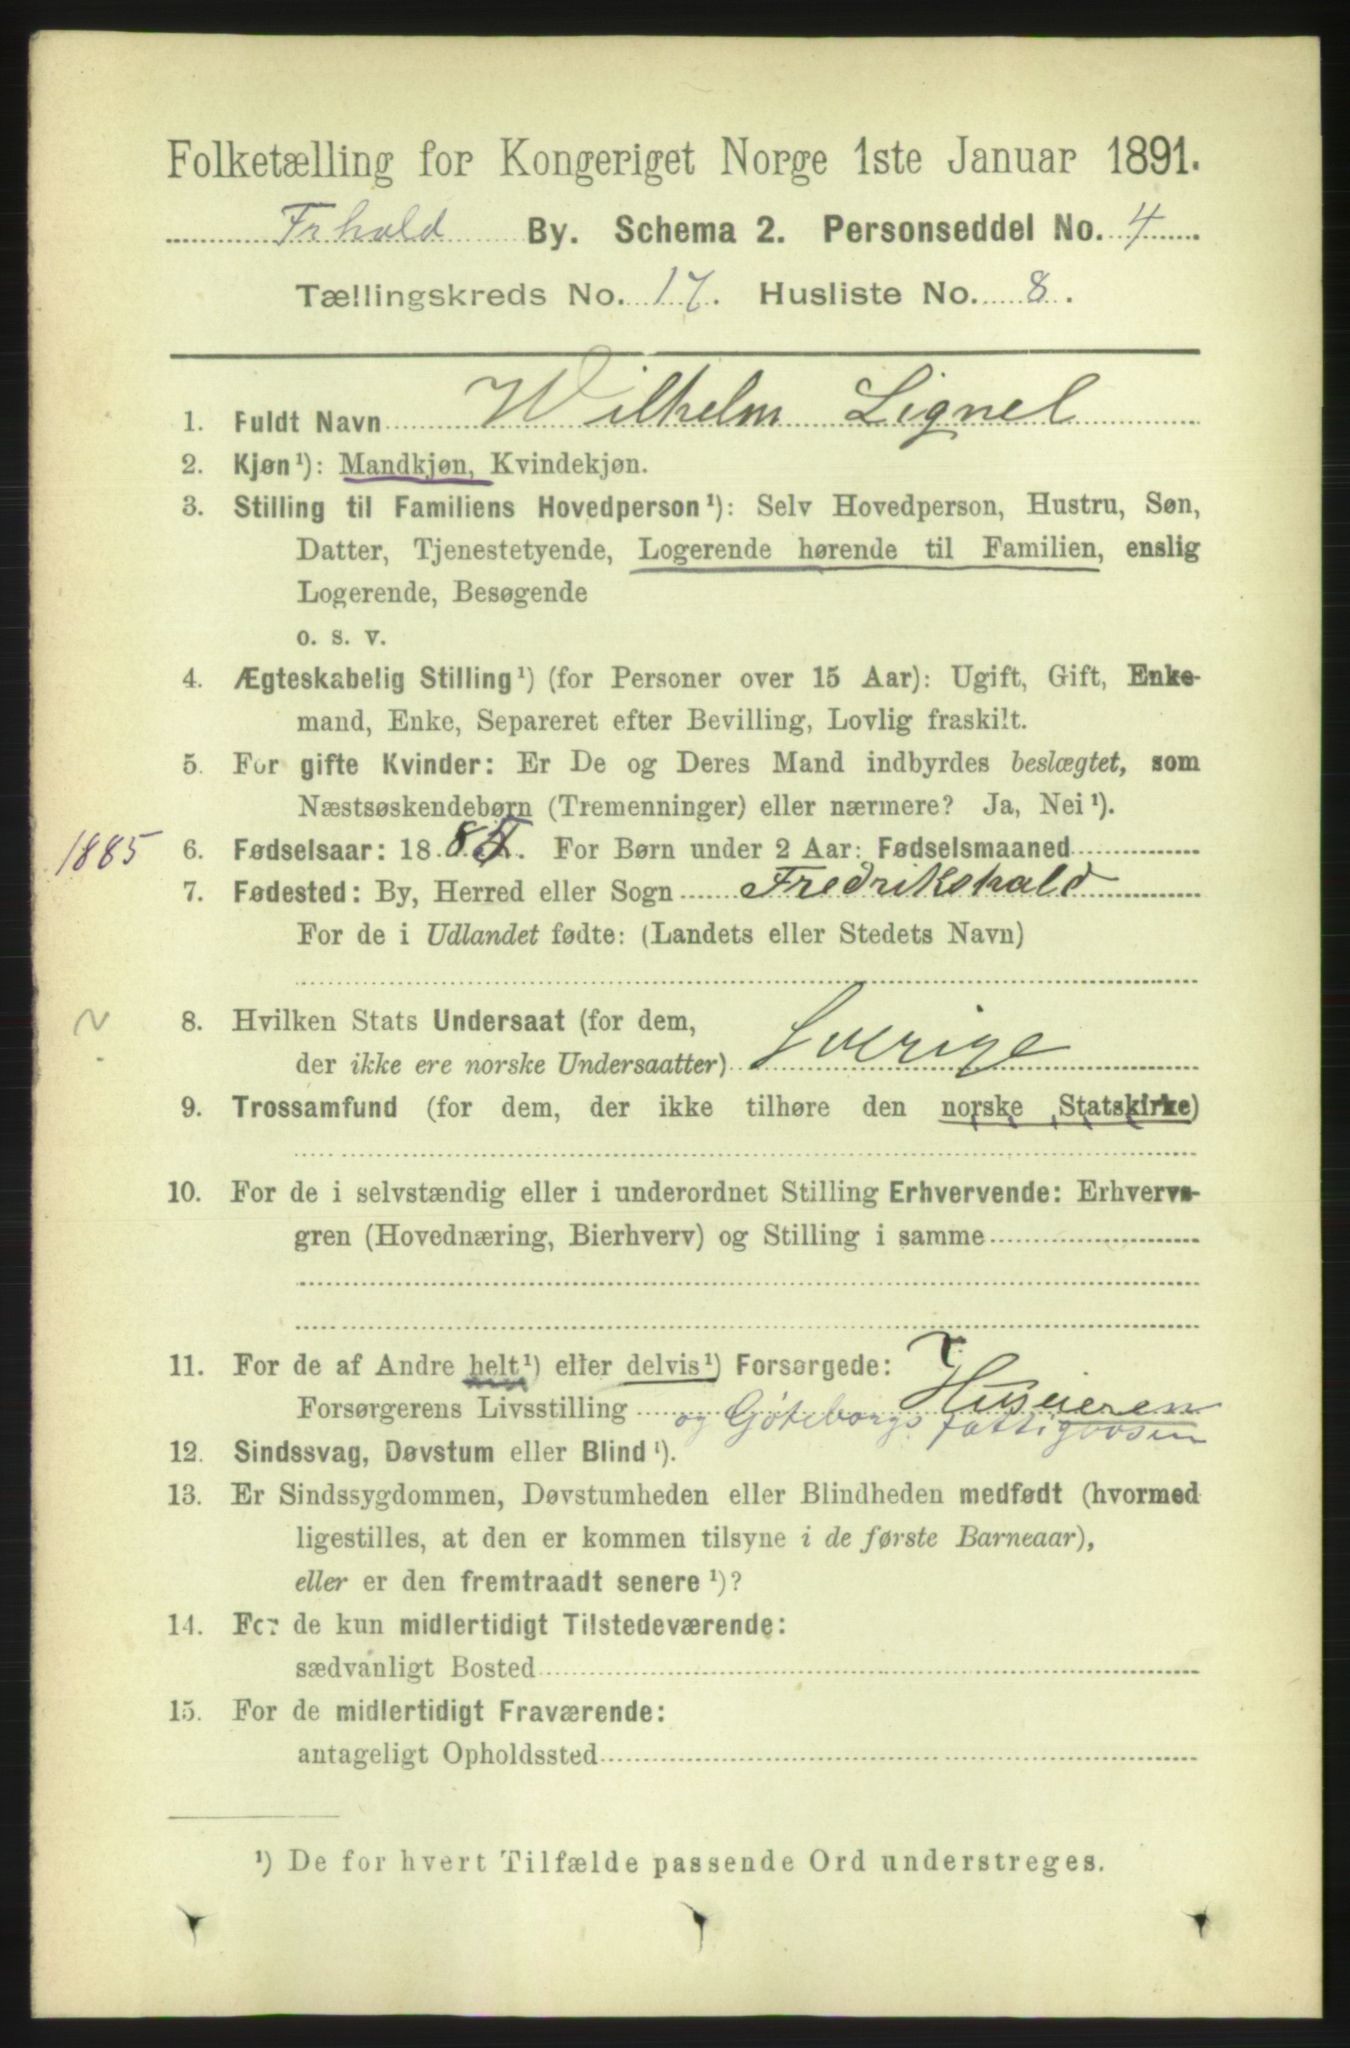 Folketælling for Kongeriget Norge 1ste Januar 1891.
Frhald By. Schema 2. Personseddel No. 4
Tællingskreds No. 17. Husliste No. 8.
1. Fuldt Navn Wilhelm Lignel
2. Kjøn¹): Mandkjøn, Kvindekjøn.
3. Stilling til Familiens Hovedperson¹): Selv Hovedperson, Hustru, Søn,
Datter, Tjenestetyende, Logerende hørende til Familien, enslig
Logerende, Besøgende
o. s. v.
4. Ægteskabelig Stilling¹) (for Personer over 15 Aar): Ugift, Gift, Enke-
mand, Enke, Separeret efter Bevilling, Lovlig fraskilt.
5. For gifte Kvinder: Er De og Deres Mand indbyrdes beslægtet, som
Næstsøskendebørn (Tremenninger) eller nærmere? Ja, Nei¹).
1885 6. Fødselsaar: 1885. For Børn under 2 Aar: Fødselsmaaned
7. Fødested: By, Herred eller Sogn Fredrikshald
For de i Udlandet fødte: (Landets eller Stedets Navn)
8. Hvilken Stats Undersaat (for dem,
der ikke ere norske Undersaatter) Sverige
9. Trossamfund (for dem, der ikke tilhøre den norske Statskirke)
10. For de i selvstændig eller i underordnet Stilling Erhvervende: Erhvervs-
gren (Hovednæring, Bierhverv) og Stilling i samme
11. For de af Andre helt¹) eller delvis¹) Forsørgede:
Forsørgerens Livsstilling Huseieren
og Göteborgs fattigvæsen
12. Sindssvag, Døvstum eller Blind¹).
13. Er Sindssygdommen, Døvstumheden eller Blindheden medfødt (hvormed
ligestilles, at den er kommen tilsyne i de første Barneaar),
eller er den fremtraadt senere¹)?
14. For de kun midlertidigt Tilstedeværende:
sædvanligt Bosted
15. For de midlertidigt Fraværende:
antageligt Opholdssted
¹) De for hvert Tilfælde passende Ord understreges.